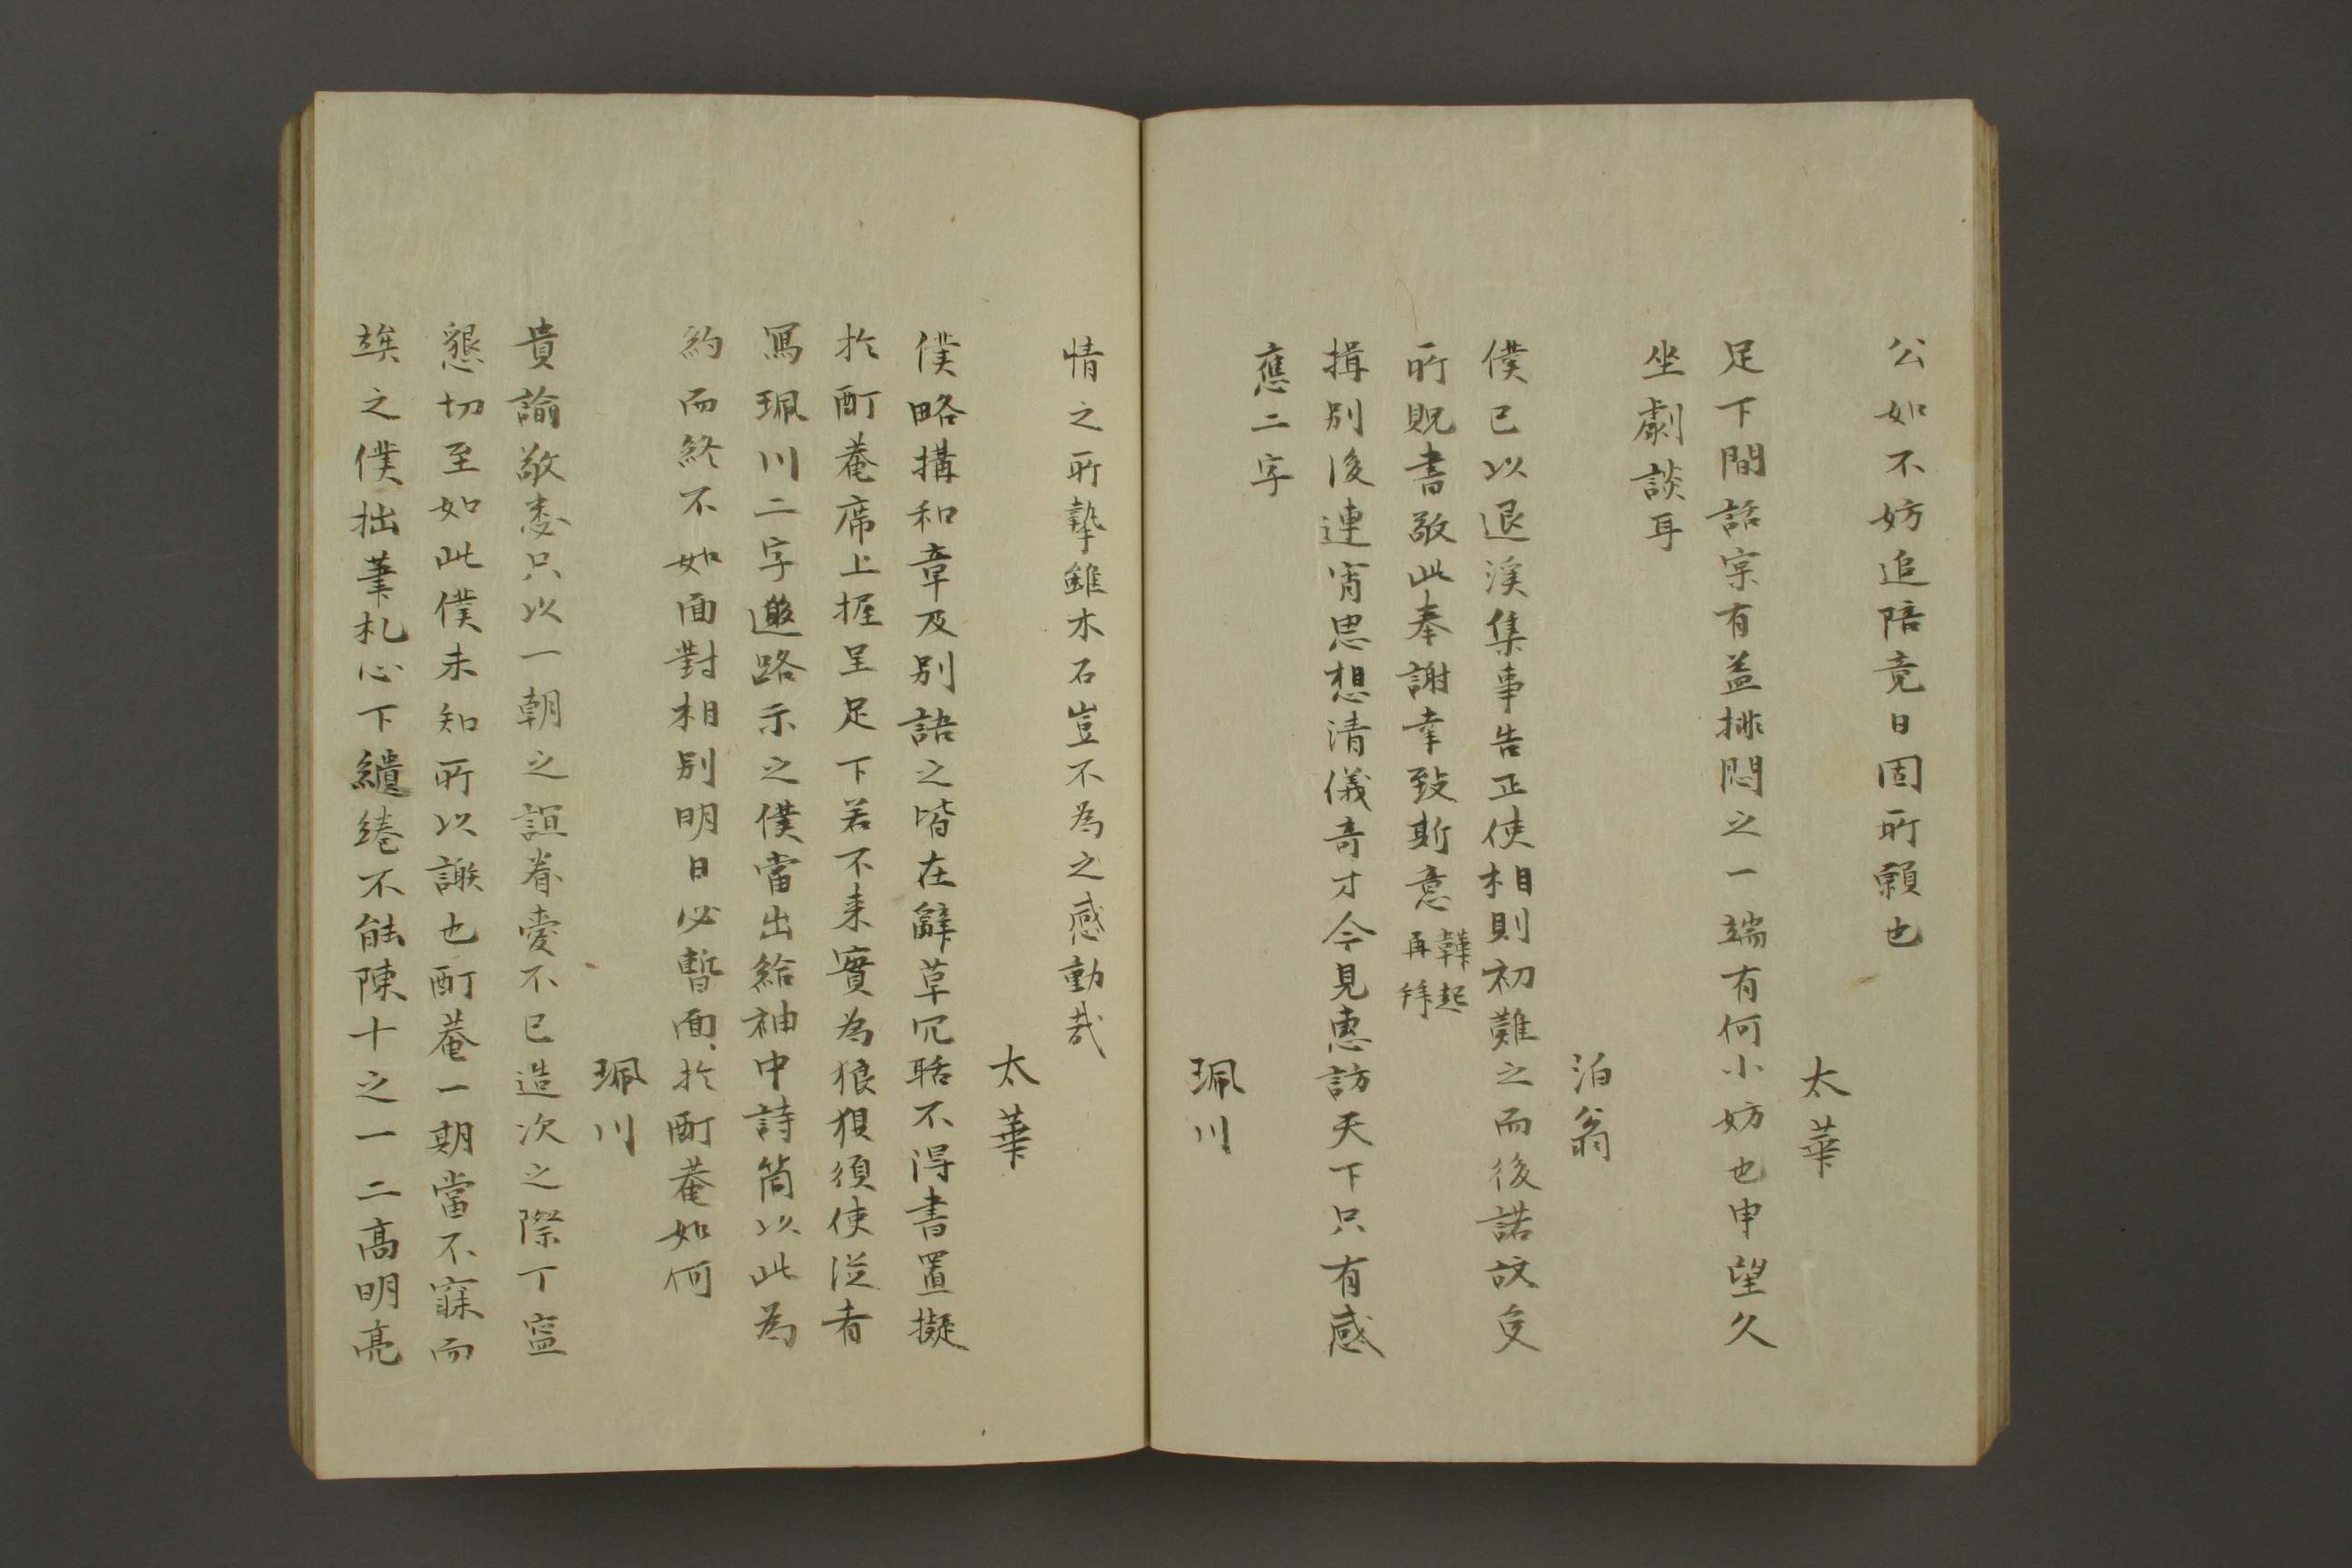 公如不妨追陪竟日固所願也
太華
足下間話宗有益排悶之一端有何小妨也申望久
坐劇談耳
泊翁
僕已以退溪集事告正使相則初難之而後諾故受
所貺書敬此奉謝幸致斯意韡起再拜
揖別後連宵思想清儀奇才今見惠訪天下只有感
應二字
珮川
情之所摯雖木石豈不為之感動哉
太華
僕略搆和章及別語之皆在辭草冗聒不得書置擬
於酊菴席上握呈足下若不来實為狼狽須使従者
寫珮川二字邀路示之僕當出給袖中詩筒以此為
約而終不如面對相別明日必暫面於酊菴如何
珮川
貴諭敬悉只以一朝之誼眷愛不已造次之際丁寍
懇切至如此僕未知所以謝也酊菴一期當不寐而
竢之僕拙筆札心下繾綣不能陳十之一二高明亮